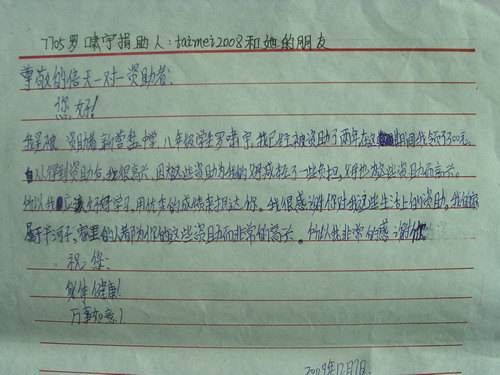 7705罗啸宇捐助人：taimei2008和她的朋友
尊敬的倍天一对一资助者：
您好！
我是被资助者到营盘中学，八年级学生罗啸宇，我已经被资助了两年在这期间我领了300元。
从得到资助后，我很高兴，因为这些资助为我的父母减轻了一些负担，父母也为这些资助而高兴。
所以我应该好好学习，用优秀的成绩来报达你。我很感谢你对我这些生活上的资助。我的
属于 家里的人都为你的这些资助而非常的高兴。所以我非常的感谢你
祝您：
身体健康！
万事如意！
2009年12月7日